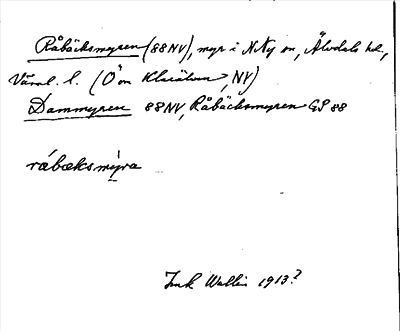 Råbäcksmyren (88NV), myr i N Ny sn, Älvdals hd,
Värml. l. (Ö om Klarälven, NV)
Dammyren 88NV, Råbäcksmyren GS 88
råbæksmyra
Wallin 1913?